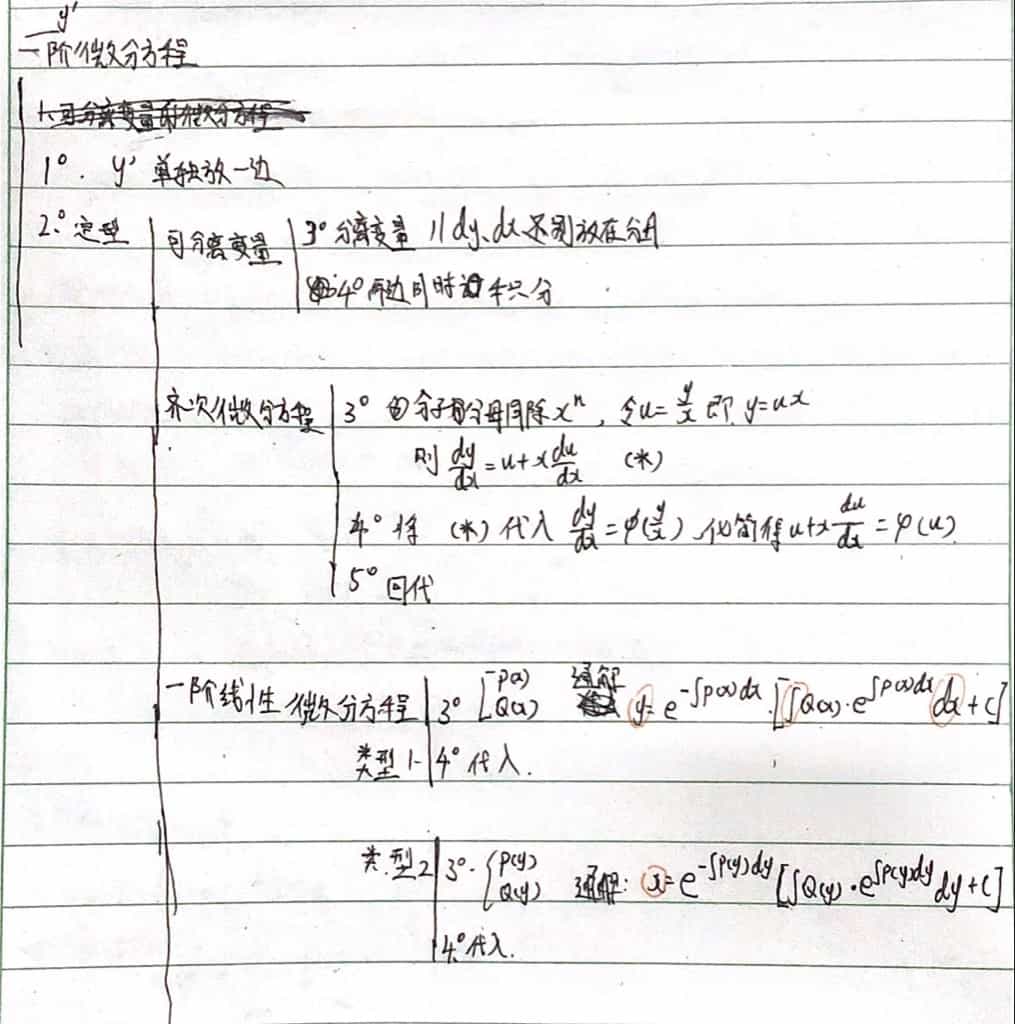 y'
一阶微分方程
1、可分离变量的微分方程
1° . y' 单独放一边
2° 定型 可分离变量 3° 分离变量 // dy、dx 不能放在分母
4° 两边同时积分
齐次微分方程 3° 分子分母同除 xⁿ, 令 u=y/x 即 y=ux
则 dy/dx = u+x du/dx (*)
4° 将 (*) 代入 dy/dx = φ(y/x), 化简得 u+x du/dx = φ(u)
5° 回代
一阶线性微分方程 3° [P(x) Q(x) 通解 y= e^{-∫P(x)dx}·[∫Q(x)·e^{∫P(x)dx} dx + C]
类型1. 4° 代入.
类型2 3°. {P(y) Q(y) 通解: x= e^{-∫P(y)dy} [∫Q(y)·e^{∫P(y)dy} dy + C]
4° 代入.